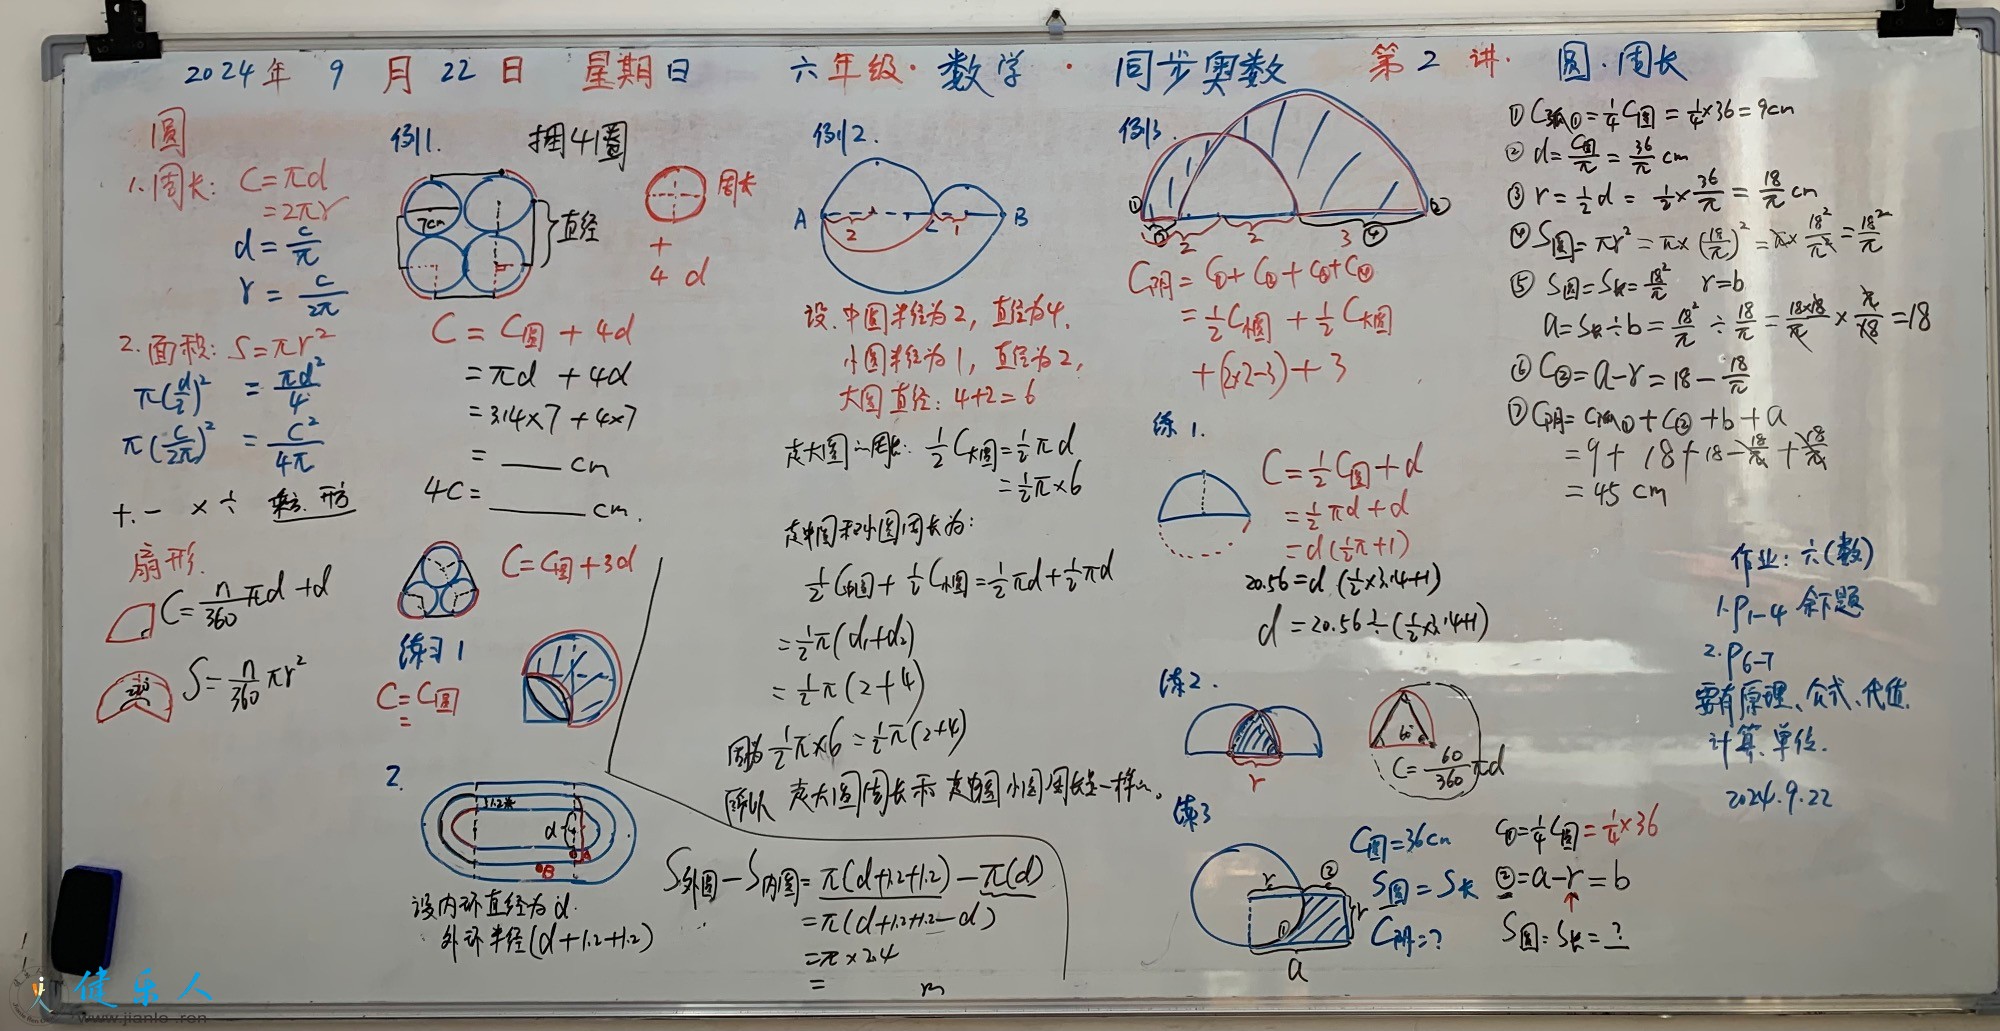 2024年 9 月 22 日 星期日 六年级·数学·同步奥数 第 2 讲· 圆·周长
圆
1.周长: C=πd
=2πr
d=c/π
r=c/2π
2.面积: S=πr²
π(d/2)²=πd²/4
π(c/2π)²=C²/4π
+ - × ÷ 乘方
扇形.
C=n/360 πd+d
S=n/360 πr²
例1. 捆4圈
7cm
直径
周长
+
4 d
C=C圆+4d
=πd+4d
=3.14×7+4×7
=____cm
4C=______cm.
C=C圆+3d
练习1
C=C圆
=
2.
1.2米
d
A
B
设内环直径为d.
外环半径(d+1.2+1.2)
S外圆-S内圆=π(d+1.2+1.2)-π(d)
=π(d+1.2+1.2-d)
=π×2.4
= m
例2.
A 2 C 1 B
设.中圆半径为2,直径为4.
小圆半径为1,直径为2,
大圆直径:4+2=6
走大圆的周长:½C大圆=½πd
=½π×6
走中圆和小圆周长为:
½C中圆+½C小圆=½πd+½πd
=½π(d₁+d₂)
=½π(2+4)
因为½π×6=½π(2+4)
所以走大圆周长和走中圆小圆周长是一样的。
例3.
① ③ 2 2 3 ④ ②
C阴=C①+C②+C③+C④
=½C小圆+½C大圆
+(2×2-3)+3
练1.
C=½C圆+d
=½πd+d
=d(½π+1)
20.56=d(½×3.14+1)
d=20.56÷(½×3.14+1)
练2.
r
60°
C=60/360 πd
练3
r ② r
①
a
C圆=36cm
S圆=S长
C阴=?
C①=¼C圆=¼×36
②=a-r=b
S圆=S长=?
①C弧①=¼C圆=¼×36=9cm
②d=C圆/π=36/π cm
③r=½d=½×36/π=18/π cm
④S圆=πr²=π×(18/π)²=π×18²/π²=18²/π
⑤S圆=S长=18²/π r=b
a=S长÷b=18²/π÷18/π=18×18/π×π/18=18
⑥C②=a-r=18-18/π
⑦C阴=C弧①+C②+b+a
=9+18+18-18/π+18/π
=45cm
作业:六(数)
1.P1-4 余下题
2.P6-7
要有原理、公式、代值、
计算、单位.
2024.9.22
健乐人
www.jianle.ren